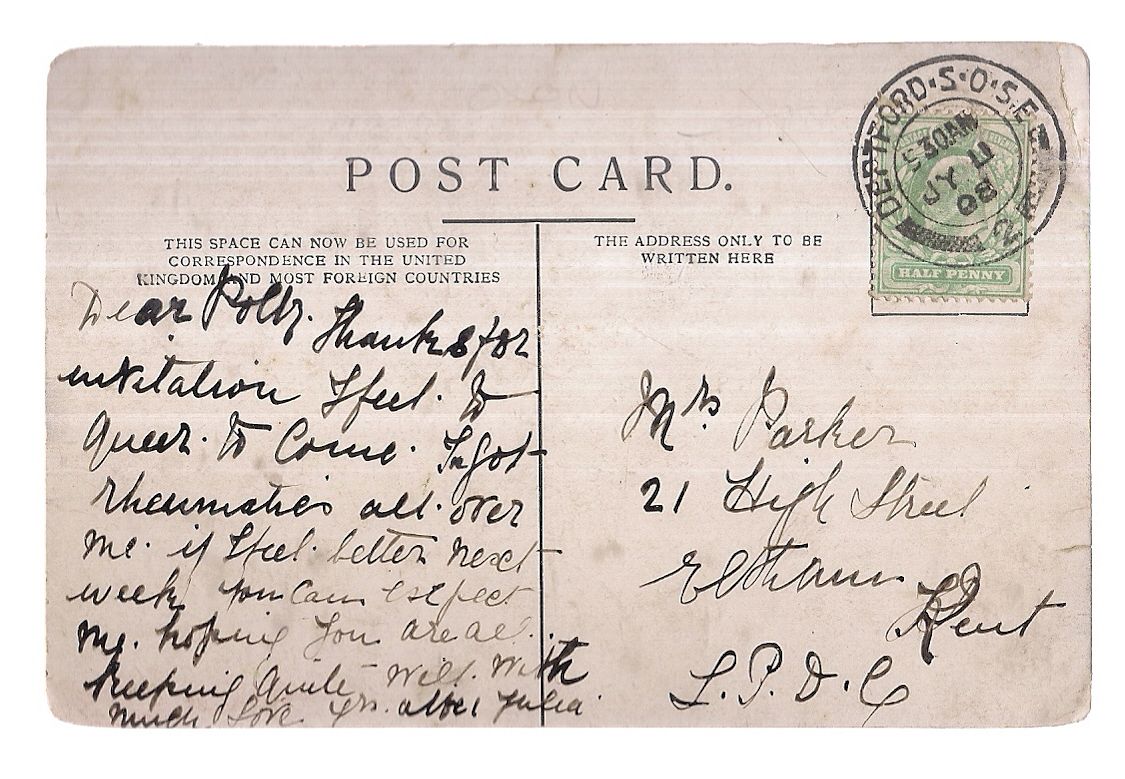 POST CARD.
THIS SPACE CAN NOW BE USED FOR
CORRESPONDENCE IN THE UNITED
KINGDOM AND MOST FOREIGN COUNTRIES
Dear Polly. Thanks for
invitation I feel. to
queer. to Come. I got
rheumatics all. over
me. if I feel. better next
week you can expect
me. hoping you are all.
keeping quite well. with
much love yrs. Julia
THE ADDRESS ONLY TO BE
WRITTEN HERE
DEPTFORD·S·O·S.E
5 30AM
JY 11
08
2
HALF PENNY
Mrs Parker
21 High Street
Eltham
Kent